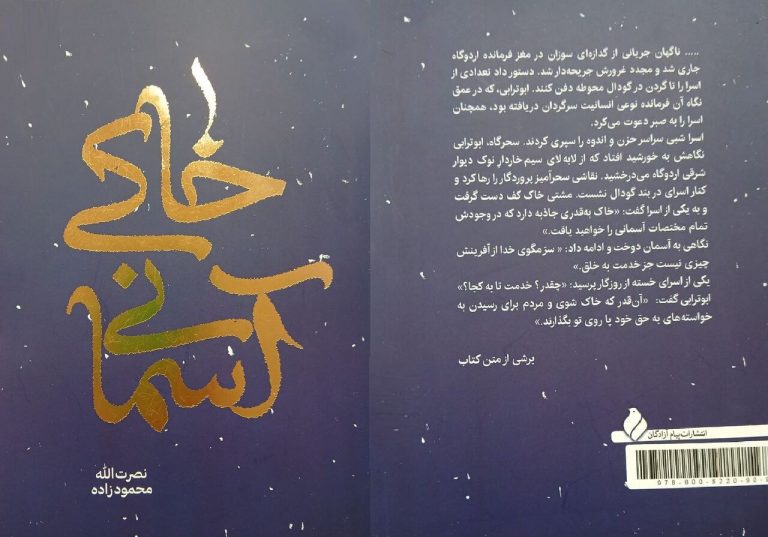 خاکی
آسمانی
نصرت الله
محمودزاده
..... ناگهان جریانی از گدازه‌ای سوزان در مغز فرمانده اردوگاه
جاری شد و مجدد غرورش جریحه‌دار شد. دستور داد تعدادی از
اسرا را تا گردن در گودال محوطه دفن کنند. ابوترابی، که در عمق
نگاه آن فرمانده نوعی انسانیت سرگردان دریافته بود، همچنان
اسرا را به صبر دعوت می‌کرد.
اسرا شبی سراسر حزن و اندوه را سپری کردند. سحرگاه، ابوترابی
نگاهش به خورشید افتاد که از لابه لای سیم خاردار نوک دیوار
شرقی اردوگاه می‌درخشید. نقاشی سحرآمیز پروردگار را رها کرد و
کنار اسرای در بند گودال نشست. مشتی خاک کف دست گرفت
و به یکی از اسرا گفت: «خاک به‌قدری جاذبه دارد که در وجودش
تمام مختصات آسمانی را خواهید یافت.»
نگاهی به آسمان دوخت و ادامه داد: « سز مگوی خدا از آفرینش
چیزی نیست جز خدمت به خلق.»
یکی از اسرای خسته از روزگار پرسید: «چقدر؟ خدمت تا به کجا؟»
ابوترابی گفت: «آن‌قدر که خاک شوی و مردم برای رسیدن به
خواسته‌های به حق خود پا روی تو بگذارند.»
برشی از متن کتاب
انتشارات پیام آزادگان